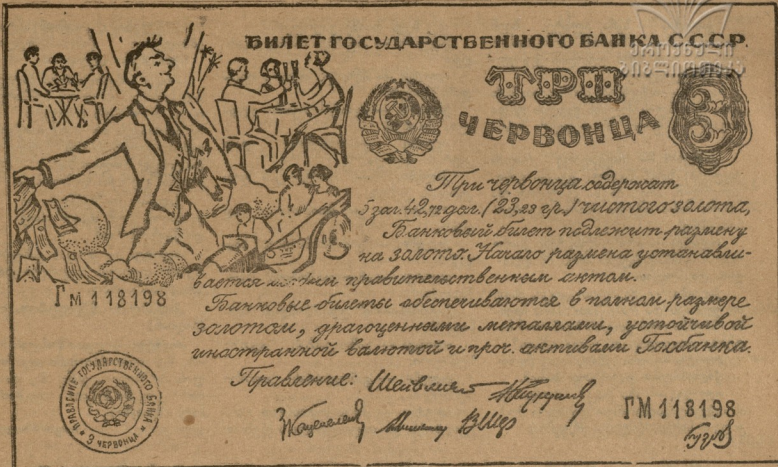 БИЛЕТ ГОСУДАРСТВЕННОГО БАНКА С.С.С.Р.
ТРИ
ЧЕРВОНЦА
3
Три червонца содержат
5 зол. 42,72 дол. (23,23 гр.) чистого золота,
Банковый билет подлежит размену
на золото. Начало размена устанавли-
вается особым правительственным актом.
Банковые билеты обеспечиваются в полном размере
золотом, драгоценными металлами, устойчивой
иностранной валютой и проч. активами Госбанка.
Правление:
ГМ 118198
ГМ 118198
ПРАВЛЕНИЕ ГОСУДАРСТВЕННОГО БАНКА
3 ЧЕРВОНЦА